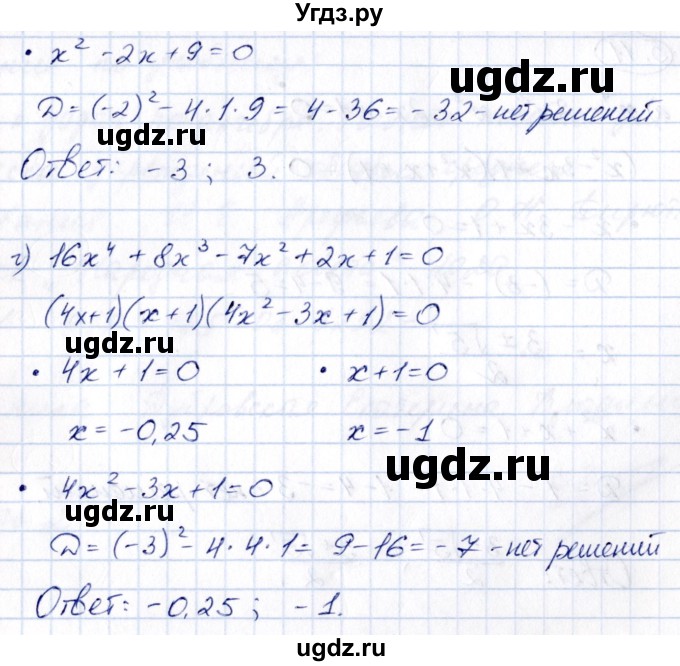 Угдз.ру
• x² - 2x + 9 = 0
ugdz.ru
Д = (-2)² - 4·1·9 = 4 - 36 = -32 - нет решений
Ответ: -3; 3.
г) 16x⁴ + 8x³ - 7x² + 2x + 1 = 0
(4x+1)(x+1)(4x² - 3x + 1) = 0
ugdz.ru
• 4x + 1 = 0 • x + 1 = 0
x = -0,25 x = -1
ugdz.ru
• 4x² - 3x + 1 = 0
ugdz.ru
Д = (-3)² - 4·4·1 = 9 - 16 = -7 - нет решений
Ответ: -0,25; -1.
ugdz.ru